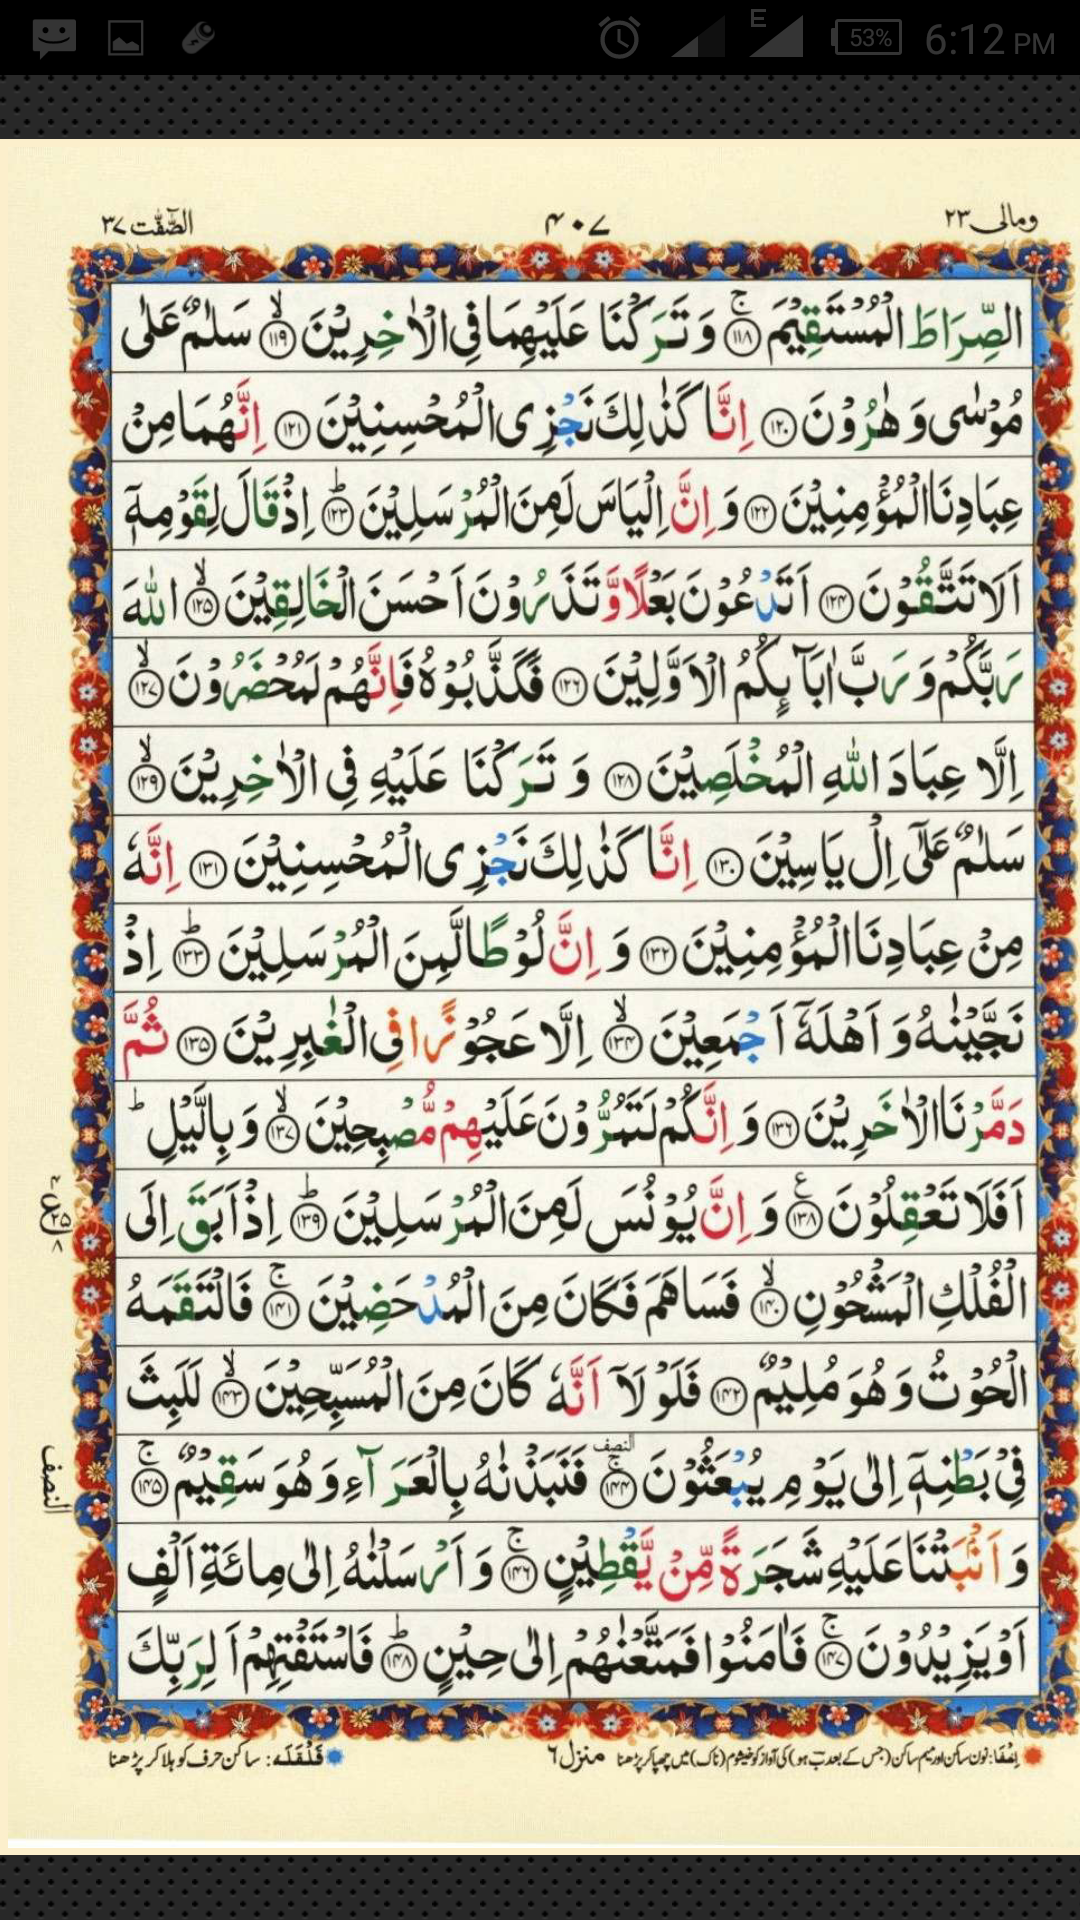 53% 6:12 PM
E
ومالی ۲۳
۴۰۷
الصّٰٓفّٰت ۳۷
الصِّرَاطَ الْمُسْتَقِيْمَ ۚ﴿۱۱۸﴾ وَ تَرَكْنَا عَلَيْهِمَا فِى الْاٰخِرِيْنَ ۙ﴿۱۱۹﴾ سَلٰمٌ عَلٰى
مُوْسٰى وَ هٰرُوْنَ ﴿۱۲۰﴾ اِنَّا كَذٰلِكَ نَجْزِى الْمُحْسِنِيْنَ ﴿۱۲۱﴾ اِنَّهُمَا مِنْ
عِبَادِنَا الْمُؤْمِنِيْنَ ﴿۱۲۲﴾ وَ اِنَّ اِلْيَاسَ لَمِنَ الْمُرْسَلِيْنَ ؕ﴿۱۲۳﴾ اِذْ قَالَ لِقَوْمِهٖۤ
اَلَا تَتَّقُوْنَ ﴿۱۲۴﴾ اَتَدْعُوْنَ بَعْلًا وَّ تَذَرُوْنَ اَحْسَنَ الْخَالِقِيْنَ ۙ﴿۱۲۵﴾ اللّٰهَ
رَبَّكُمْ وَ رَبَّ اٰبَآئِكُمُ الْاَوَّلِيْنَ ﴿۱۲۶﴾ فَكَذَّبُوْهُ فَاِنَّهُمْ لَمُحْضَرُوْنَ ۙ﴿۱۲۷﴾
اِلَّا عِبَادَ اللّٰهِ الْمُخْلَصِيْنَ ﴿۱۲۸﴾ وَ تَرَكْنَا عَلَيْهِ فِى الْاٰخِرِيْنَ ۙ﴿۱۲۹﴾
سَلٰمٌ عَلٰٓى اِلْ يَاسِيْنَ ﴿۱۳۰﴾ اِنَّا كَذٰلِكَ نَجْزِى الْمُحْسِنِيْنَ ﴿۱۳۱﴾ اِنَّهٗ
مِنْ عِبَادِنَا الْمُؤْمِنِيْنَ ﴿۱۳۲﴾ وَ اِنَّ لُوْطًا لَّمِنَ الْمُرْسَلِيْنَ ؕ﴿۱۳۳﴾ اِذْ
نَجَّيْنٰهُ وَ اَهْلَهٗۤ اَجْمَعِيْنَ ۙ﴿۱۳۴﴾ اِلَّا عَجُوْزًا فِى الْغٰبِرِيْنَ ﴿۱۳۵﴾ ثُمَّ
دَمَّرْنَا الْاٰخَرِيْنَ ﴿۱۳۶﴾ وَ اِنَّكُمْ لَتَمُرُّوْنَ عَلَيْهِمْ مُّصْبِحِيْنَ ۙ﴿۱۳۷﴾ وَ بِالَّيْلِ ؕ
اَفَلَا تَعْقِلُوْنَ ﴿۱۳۸﴾ۧ وَ اِنَّ يُوْنُسَ لَمِنَ الْمُرْسَلِيْنَ ؕ﴿۱۳۹﴾ اِذْ اَبَقَ اِلَى
الْفُلْكِ الْمَشْحُوْنِ ۙ﴿۱۴۰﴾ فَسَاهَمَ فَكَانَ مِنَ الْمُدْحَضِيْنَ ۚ﴿۱۴۱﴾ فَالْتَقَمَهُ
الْحُوْتُ وَ هُوَ مُلِيْمٌ ﴿۱۴۲﴾ فَلَوْ لَاۤ اَنَّهٗ كَانَ مِنَ الْمُسَبِّحِيْنَ ۙ﴿۱۴۳﴾ لَلَبِثَ
فِىْ بَطْنِهٖۤ اِلٰى يَوْمِ يُبْعَثُوْنَ ۚ﴿۱۴۴﴾ النصف فَنَبَذْنٰهُ بِالْعَرَآءِ وَ هُوَ سَقِيْمٌ ۚ﴿۱۴۵﴾
النصف
وَ اَنْۢبَتْنَا عَلَيْهِ شَجَرَةً مِّنْ يَّقْطِيْنٍ ۚ﴿۱۴۶﴾ وَ اَرْسَلْنٰهُ اِلٰى مِائَةِ اَلْفٍ
اَوْ يَزِيْدُوْنَ ۚ﴿۱۴۷﴾ فَاٰمَنُوْا فَمَتَّعْنٰهُمْ اِلٰى حِيْنٍ ؕ﴿۱۴۸﴾ فَاسْتَفْتِهِمْ اَ لِرَبِّكَ
اِخفَا: نون ساکن اور میم ساکن (جس کے بعد ب ہو) کی آواز کو خیشوم (ناک) میں چھپا کر پڑھنا منزل ۶ قَلْقَلَہ: ساکن حرف کو ہلا کر پڑھنا